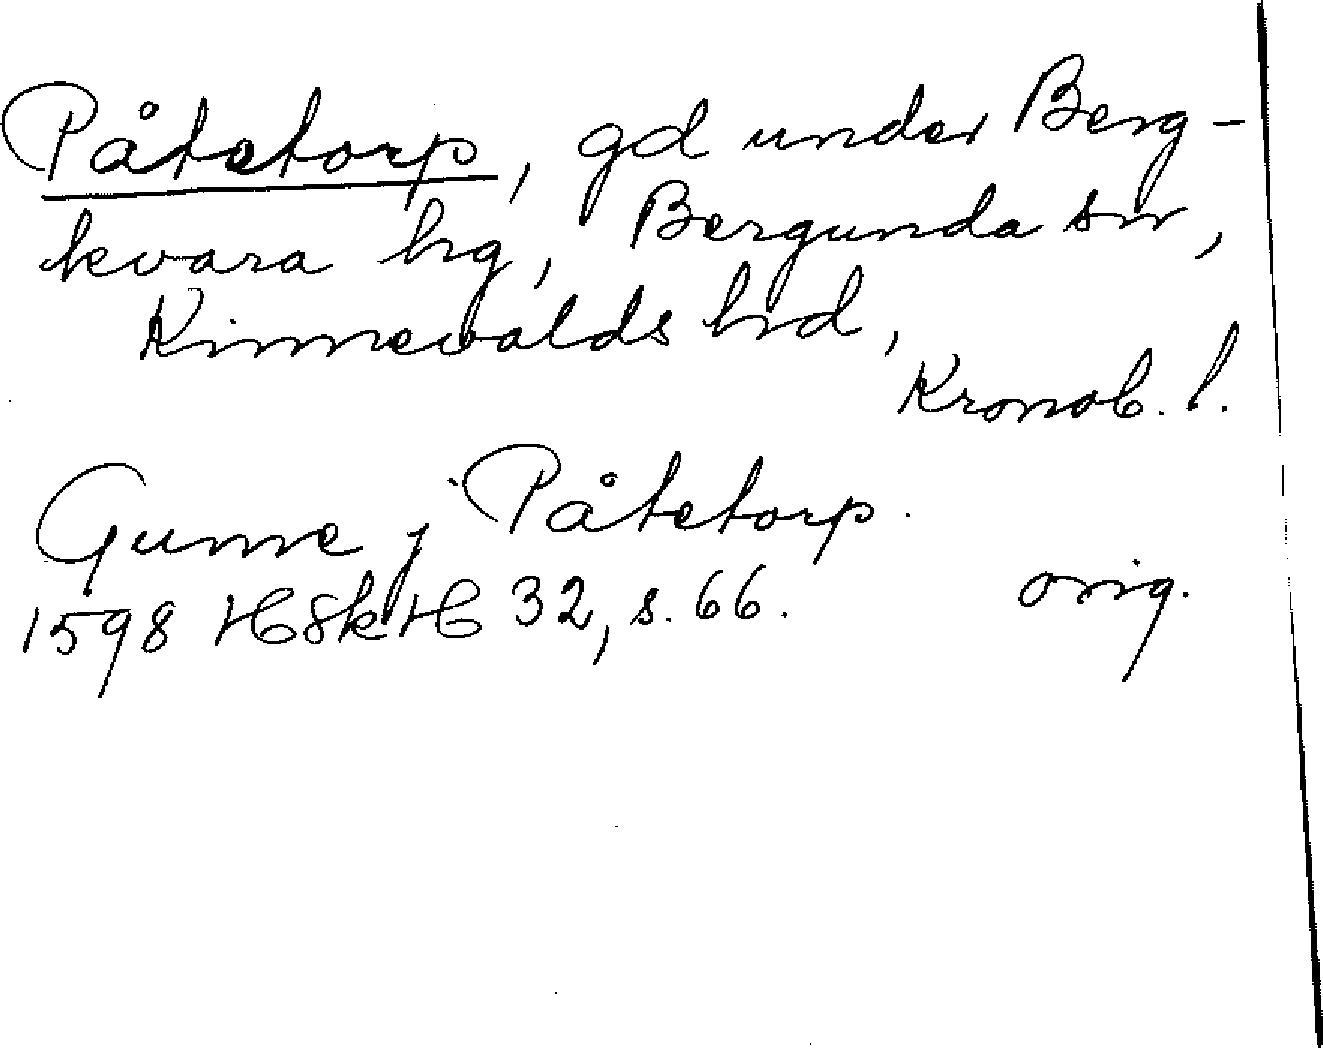 Påtetorp, gd under Berg-
kvara hg, Bergunda sn,
Kinnevalds hrd,
Kronob. l.
Gunne j Påtetorp.
1598 HSkH 32, s. 66. orig.